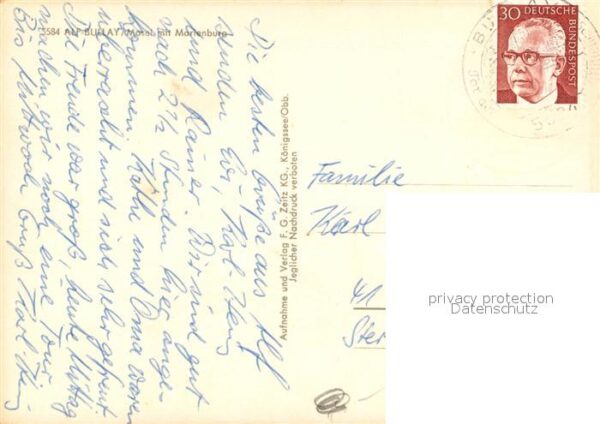 5584 ALF BULLAY/Mosel mit Marienburg
Die besten Grüße aus Alf
senden Evi, Karl-Heinz
und Rainer. Wir sind gut
nach 2½ Stunden hier ange-
kommen. Käthe und Oma waren
überrascht und sich sehr gefreut
Die Freude war groß, heute Mittag
machen wir noch eine Tour
Bis Mittwoch Gruß Karl-Heinz
Aufnahme und Verlag F. G. Zeitz KG., Königssee/Obb.
Jeglicher Nachdruck verboten
30 DEUTSCHE
BUNDESPOST
Familie
Karl
41
Ster
privacy protection
Datenschutz